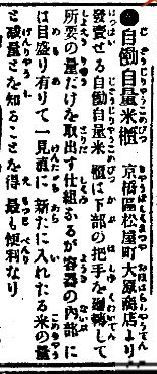 ●自働自量米櫃　京橋區松屋町大原商店より
發賣せる自働自量米櫃は下部の把手を廻轉して
所要の量だけを取出す仕組なるが容器の內部に
は目盛り有りて一見直に新たに入れたる米の量
と殘量とを知ることを得最も便利なり